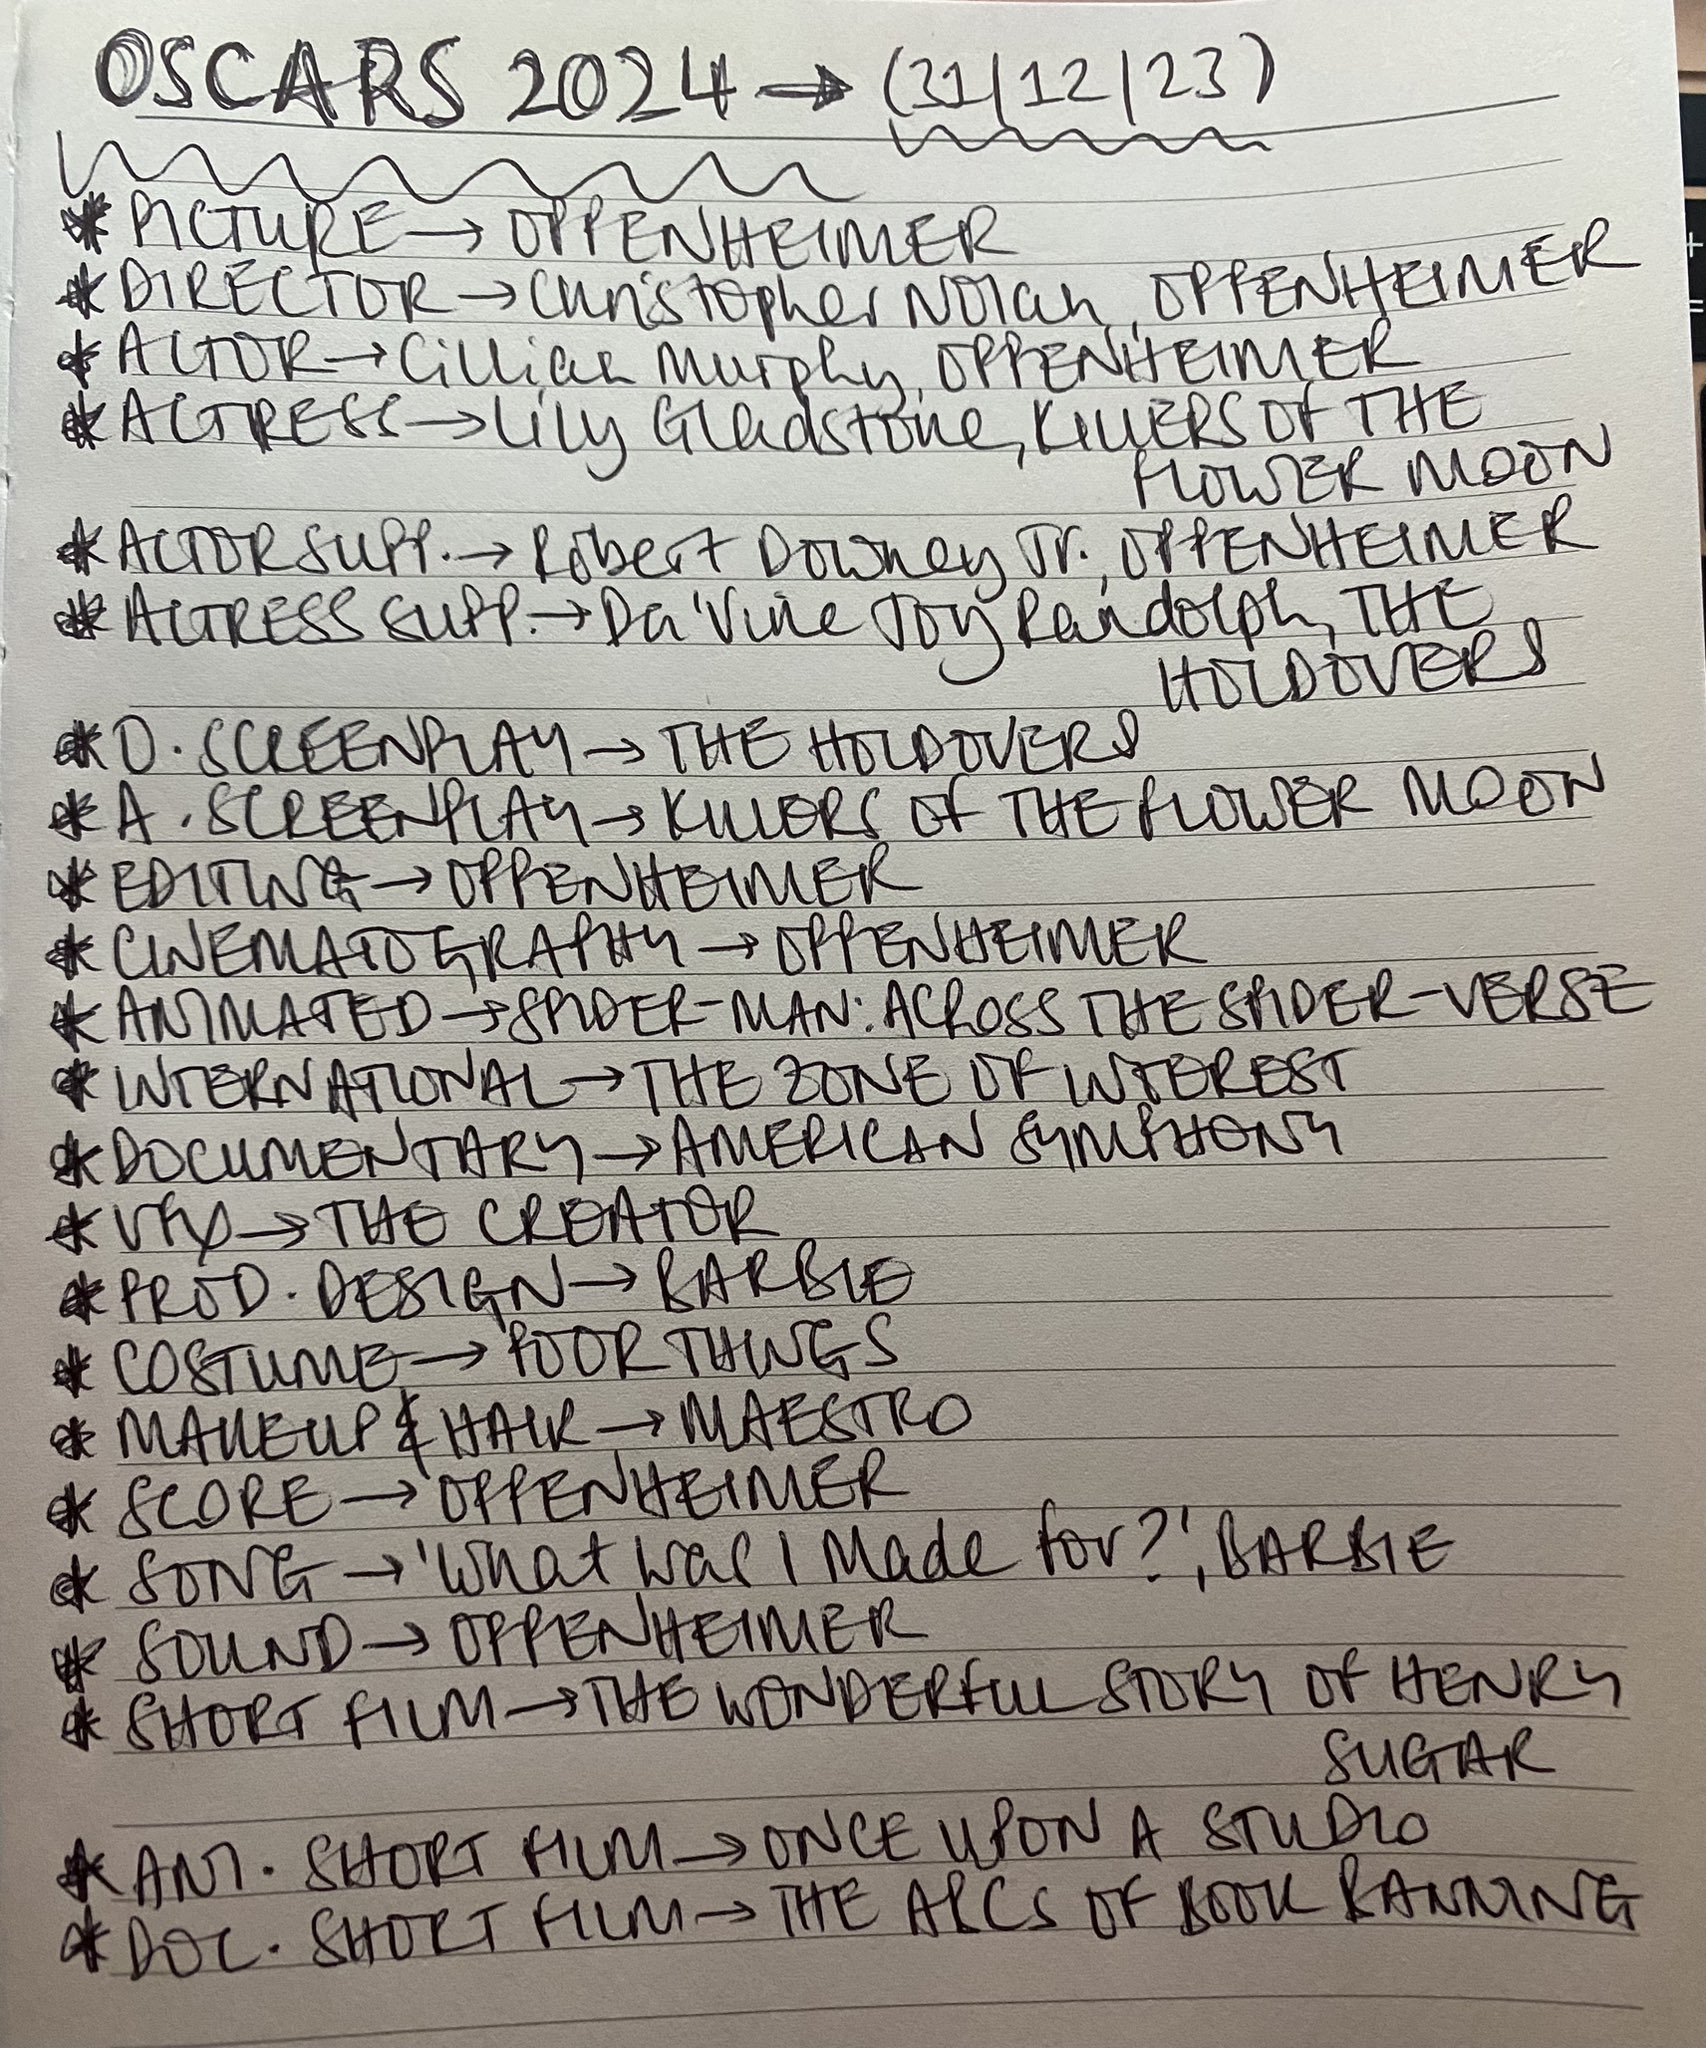 OSCARS 2024 → (31/12/23)
* PICTURE → OPPENHEIMER
* DIRECTOR → Christopher Nolan, OPPENHEIMER
* ACTOR → Cillian Murphy, OPPENHEIMER
* ACTRESS → Lily Gladstone, KILLERS OF THE
FLOWER MOON
* ACTOR SUPP. → Robert Downey Jr., OPPENHEIMER
* ACTRESS SUPP. → Da'Vine Joy Randolph, THE
HOLDOVERS
* O. SCREENPLAY → THE HOLDOVERS
* A. SCREENPLAY → KILLERS OF THE FLOWER MOON
* EDITING → OPPENHEIMER
* CINEMATOGRAPHY → OPPENHEIMER
* ANIMATED → SPIDER-MAN: ACROSS THE SPIDER-VERSE
* INTERNATIONAL → THE ZONE OF INTEREST
* DOCUMENTARY → AMERICAN SYMPHONY
* VFX → THE CREATOR
* PROD. DESIGN → BARBIE
* COSTUME → POOR THINGS
* MAKEUP & HAIR → MAESTRO
* SCORE → OPPENHEIMER
* SONG → 'What Was I Made for?', BARBIE
* SOUND → OPPENHEIMER
* SHORT FILM → THE WONDERFUL STORY OF HENRY
SUGAR
* ANI. SHORT FILM → ONCE UPON A STUDIO
* DOC. SHORT FILM → THE ABCS OF BOOK BANNING